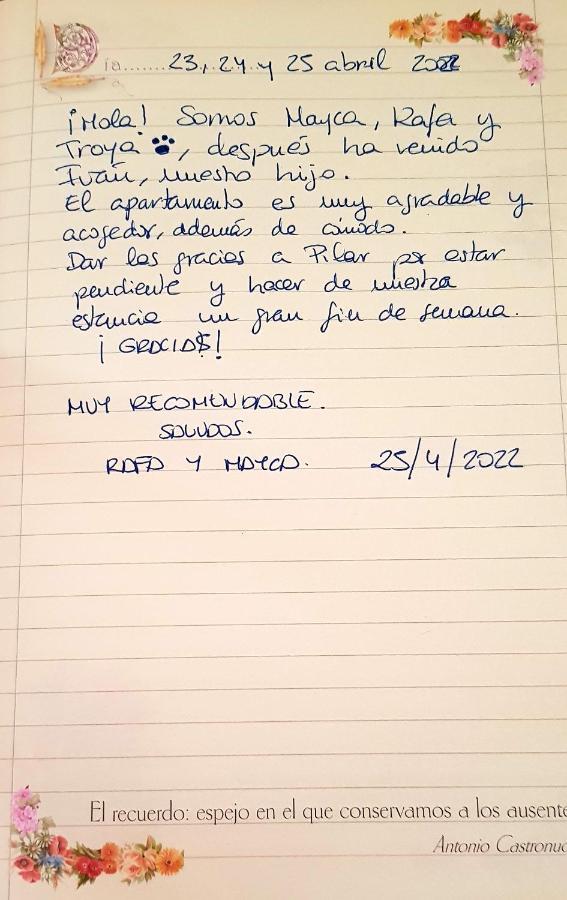 Día....... 23, 24 y 25 abril 2022
¡Hola! Somos Mayca, Rafa y
Troya 🐾, después ha venido
Iván, nuestro hijo.
El apartamento es muy agradable y
acogedor, además de cómodo.
Dar las gracias a Pilar por estar
pendiente y hacer de nuestra
estancia un gran fin de semana.
¡GRACIAS!
MUY RECOMENDABLE.
SALUDOS.
RAFA Y MAYCA. 25/4/2022
El recuerdo: espejo en el que conservamos a los ausente
Antonio Castronuo